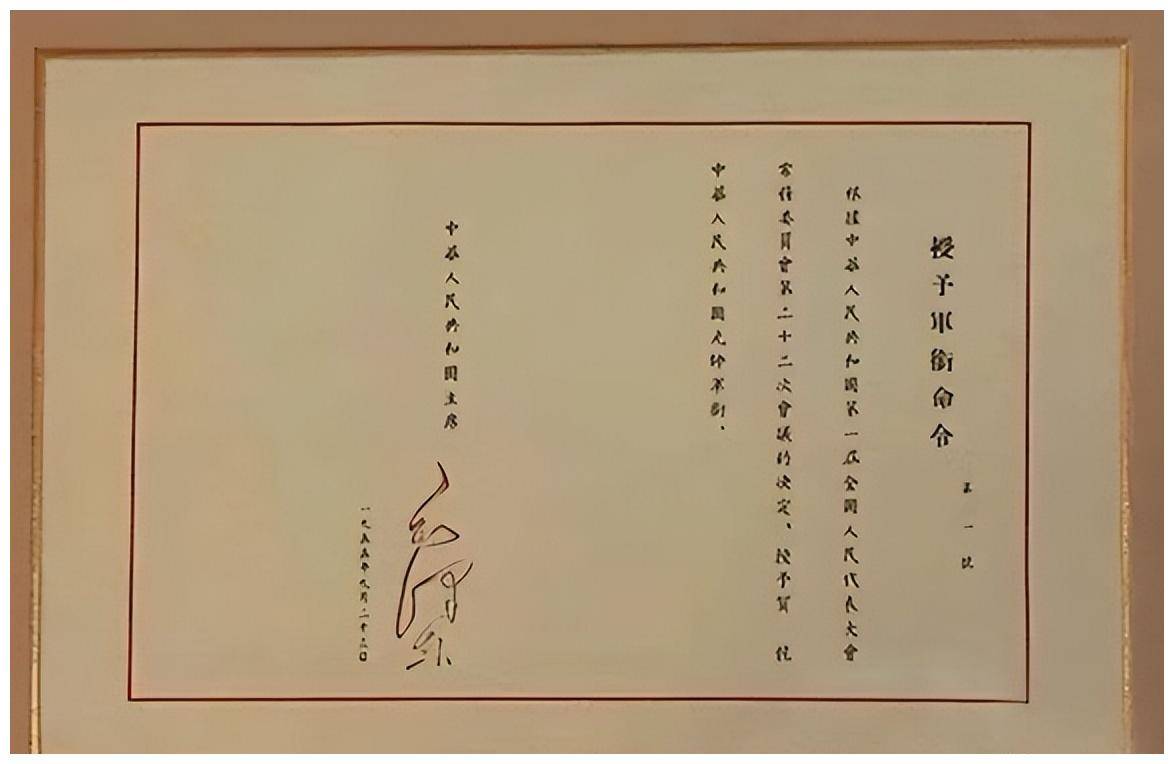 授予軍銜命令
第一號
依據中華人民共和國第一屆全國人民代表大會
常務委員會第二十二次會議的決定、授予賀 龍
中華人民共和國元帥軍銜、
中華人民共和國主席
毛澤東
一九五五年九月二十三日